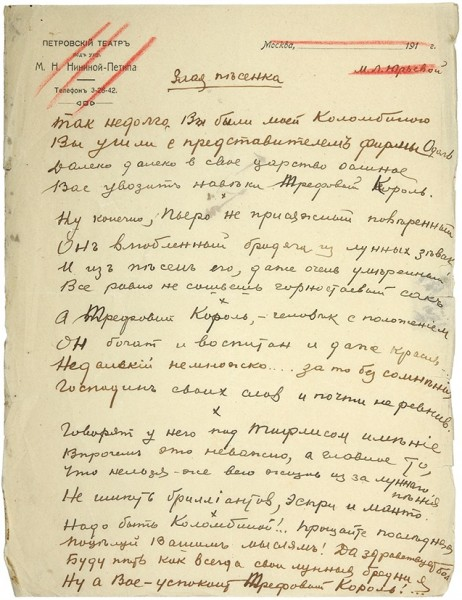 ПЕТРОВСКІЙ ТЕАТРЪ
М. Н. Нининой-Петипа
Телефонъ 3-26-42.
Москва, 191 г.
М. Л. Юрьской
Злая пѣсенка
Такъ недолго Вы были моей Коломбиною
Вы ушли с представителемъ фирмы Одоль
Далеко далеко в свое царство
Вас увозитъ навѣки Трефовый Король.
Ну конечно, Пьеро не присяжный повѣренный
Онъ влюбленный бродяга из лунных зѣвак
И из пѣсенъ его, даже очень умѣренный
Все равно не сошьешь горностаевый сакъ
х
А Трефовый Король, - человѣк с положеніем
Он богат и воспитан и даже красив...
Недалекій немножко.... за то без сомнѣнія
Господинъ своих слов и почти не ревнив.
х
Говорят у него под Тифлисом имѣніе
Впрочем это неважно, а главное то,
Что нельзя-же всю жизнь из за луннаго пѣнія
Не имѣть брилліантов, эспри и манто.
х
Надо быть Коломбиной!.. Прощайте последняя
Вашим мыслям! Да здравствует боль
Буду пѣть как всегда свои лунные бредни я
Ну а Вас - успокоит Трефовый Король!...